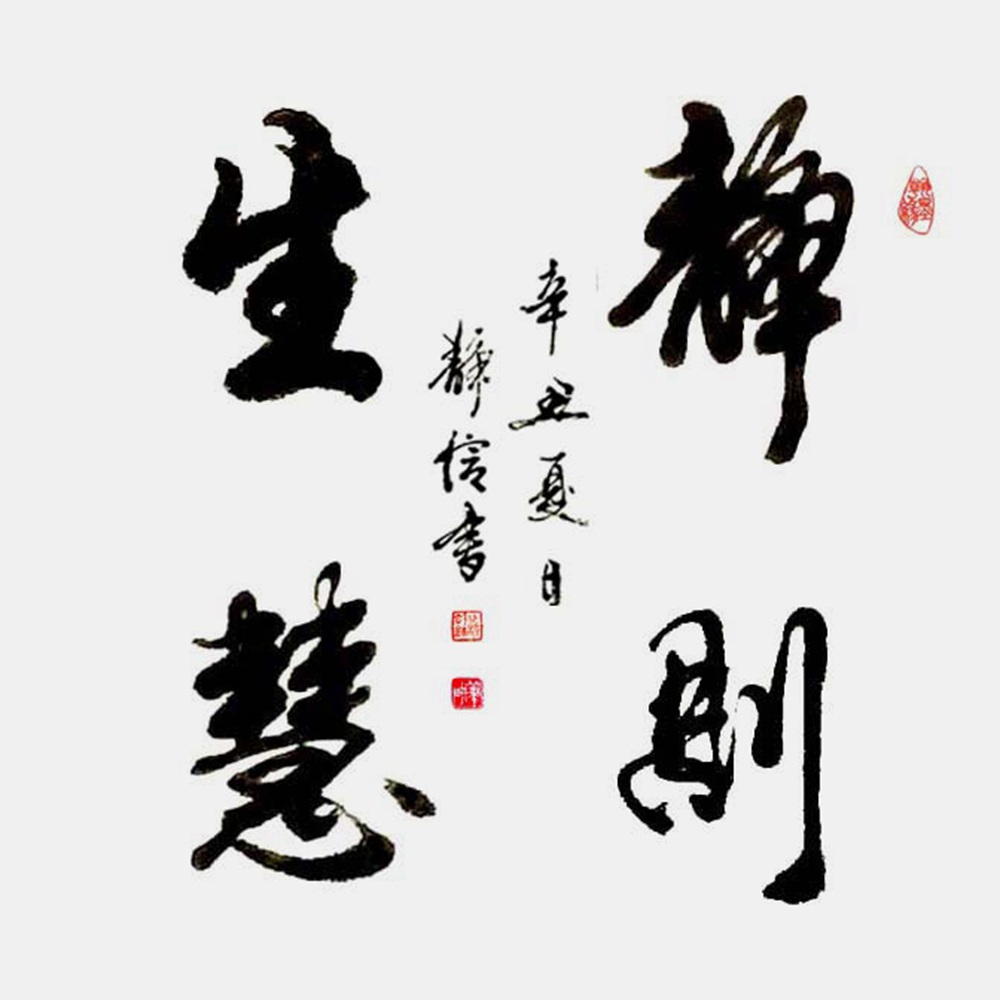 靜則
生慧
辛丑夏日
靜信書